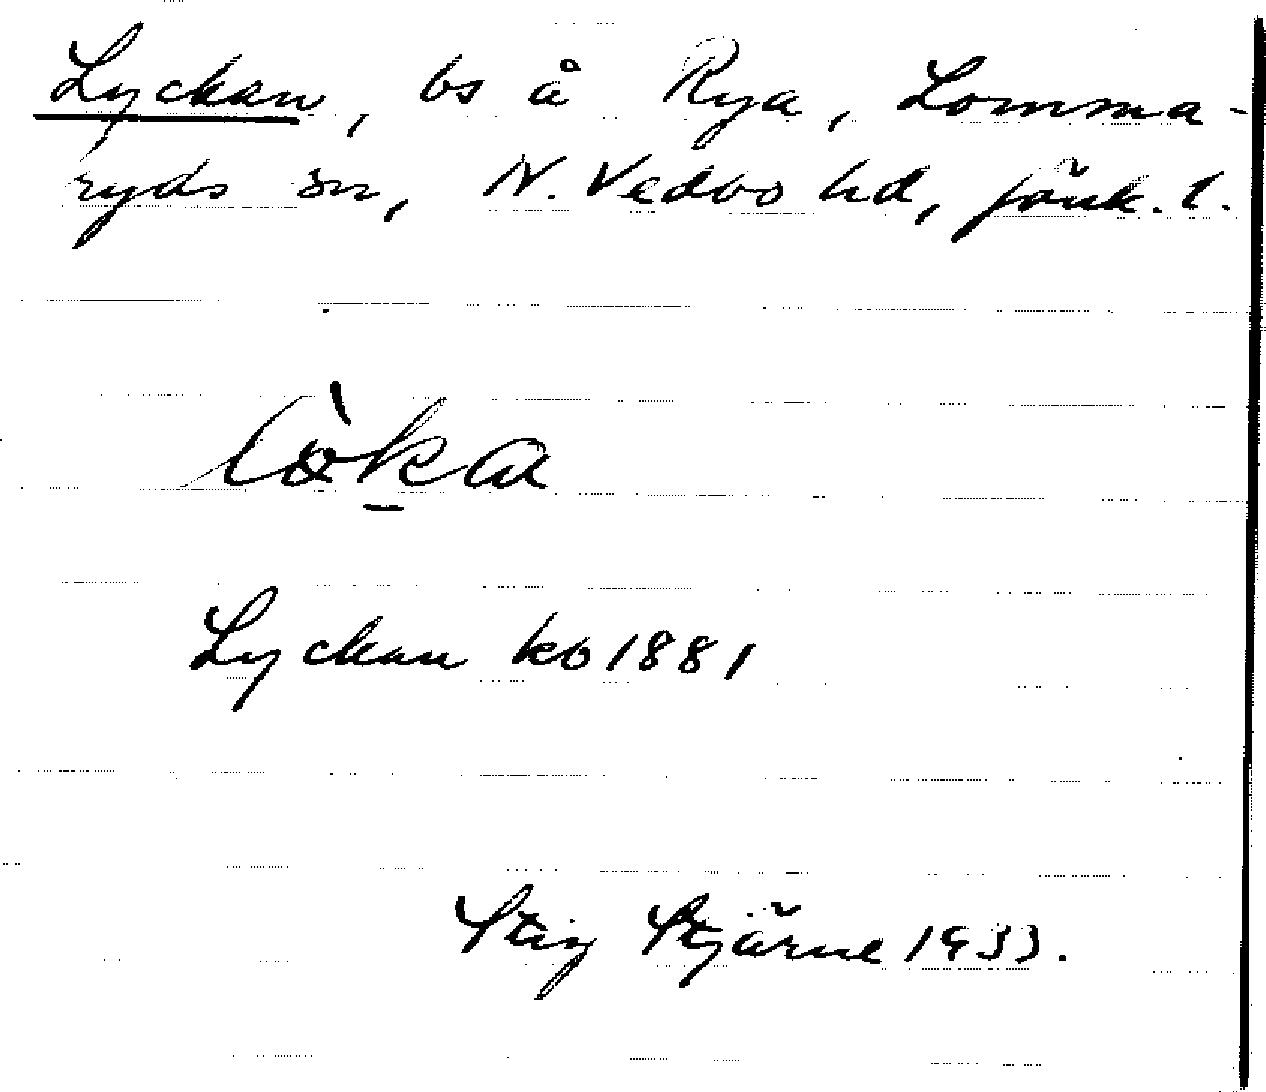 Lyckan, bs å Rya, Lomma-
ryds sn, N. Vedbo hd, Jönk. l.
Lyckan ko 1881
Stig Stjärne 1933.